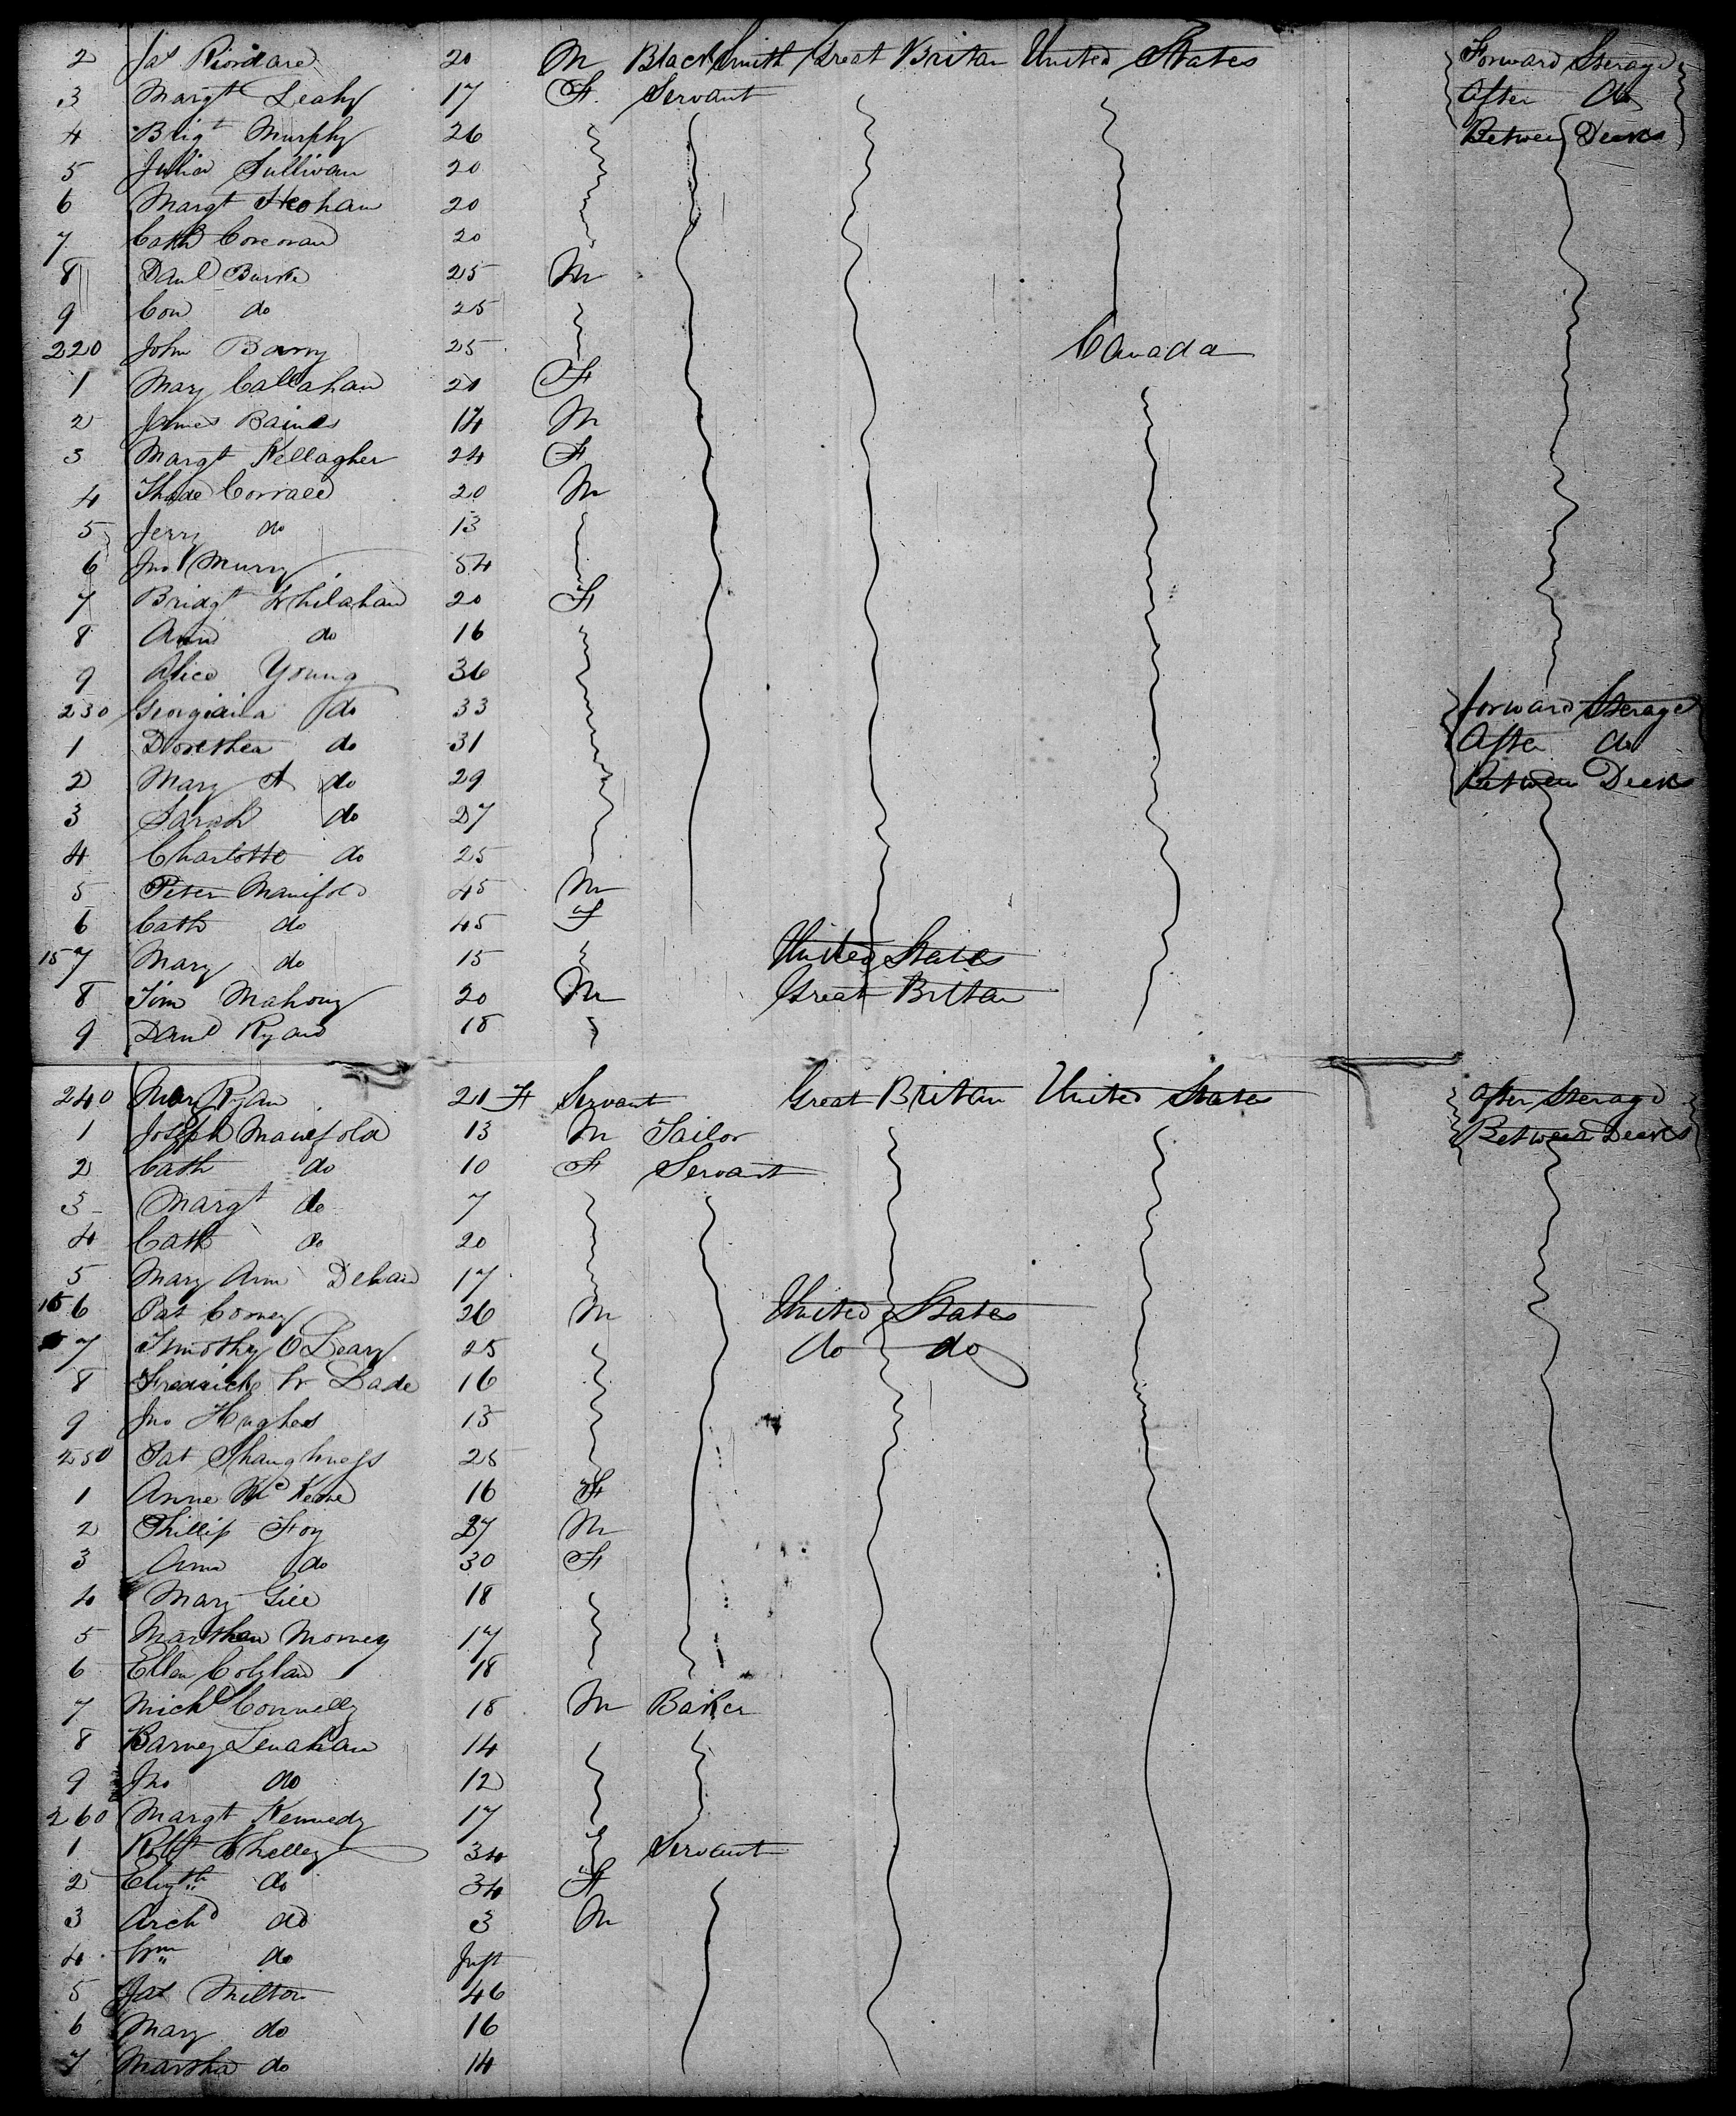 2 Jas Riordare 20 M BlackSmith Great Britan United States Forward Sterage
3 Margt Leahy 17 F. Servant After do
4 Brigt Murphy 26 Between Decks
5 Julia Sullivan 20
6 Margt Heohan 20
7 Cath Corcoran 20
8 Danl Burke 25 M
9 Con do 25
220 John Barry 25 Canada
1 Mary Callahan 20 F
2 James Baines 14 M
3 Margt Kellagher 24 F
4 Thade Correll 20 M
5 Jerry do 13
6 Jno Murry 54
7 Bridgt Whilahan 20 F
8 Ann do 16
9 Alice Young 36
230 Georgiana do 33 Forward Sterage
1 Dorethea do 31 After do
2 Mary A do 29 Between Decks
3 Sarah do 27
4 Charlotte do 25
5 Peter Manifold 45 M
6 Cath do 45 F
157 Mary do 15 United States
8 Tim Mahony 20 M Great Britan
9 Danl Ryan 18
240 Mary Ryan 21 F Servant Great Britan United States After Sterage
1 Joseph Manifold 13 M Tailor Between Decks
2 Cath do 10 F Servant
3 Margt do 7
4 Cath do 20
5 Mary Ann 17
156 Pat Comey 26 M United States
7 Timothy O Leary 25 do do
8 Fredrick W Dade 16
9 Jno Hughes 15
250 Pat Shaughness 25
1 Anne Mc Keone 16 F
2 Phillip Foy 27 M
3 Ann do 30 F
4 Mary Gill 18
5 Marthan Morney 17
6 Ellen Colglan 18
7 Michl Connelly 18 M Baker
8 Barney Lenahan 14
9 Jno do 12
260 Margt Kennedy 17
1 Robt Whelley 34 Servant
2 Elizth do 34 F
3 Archd do 3 M
4 Wm do Inft
5 Jas Milton 46
6 Mary do 16
7 Martha do 14